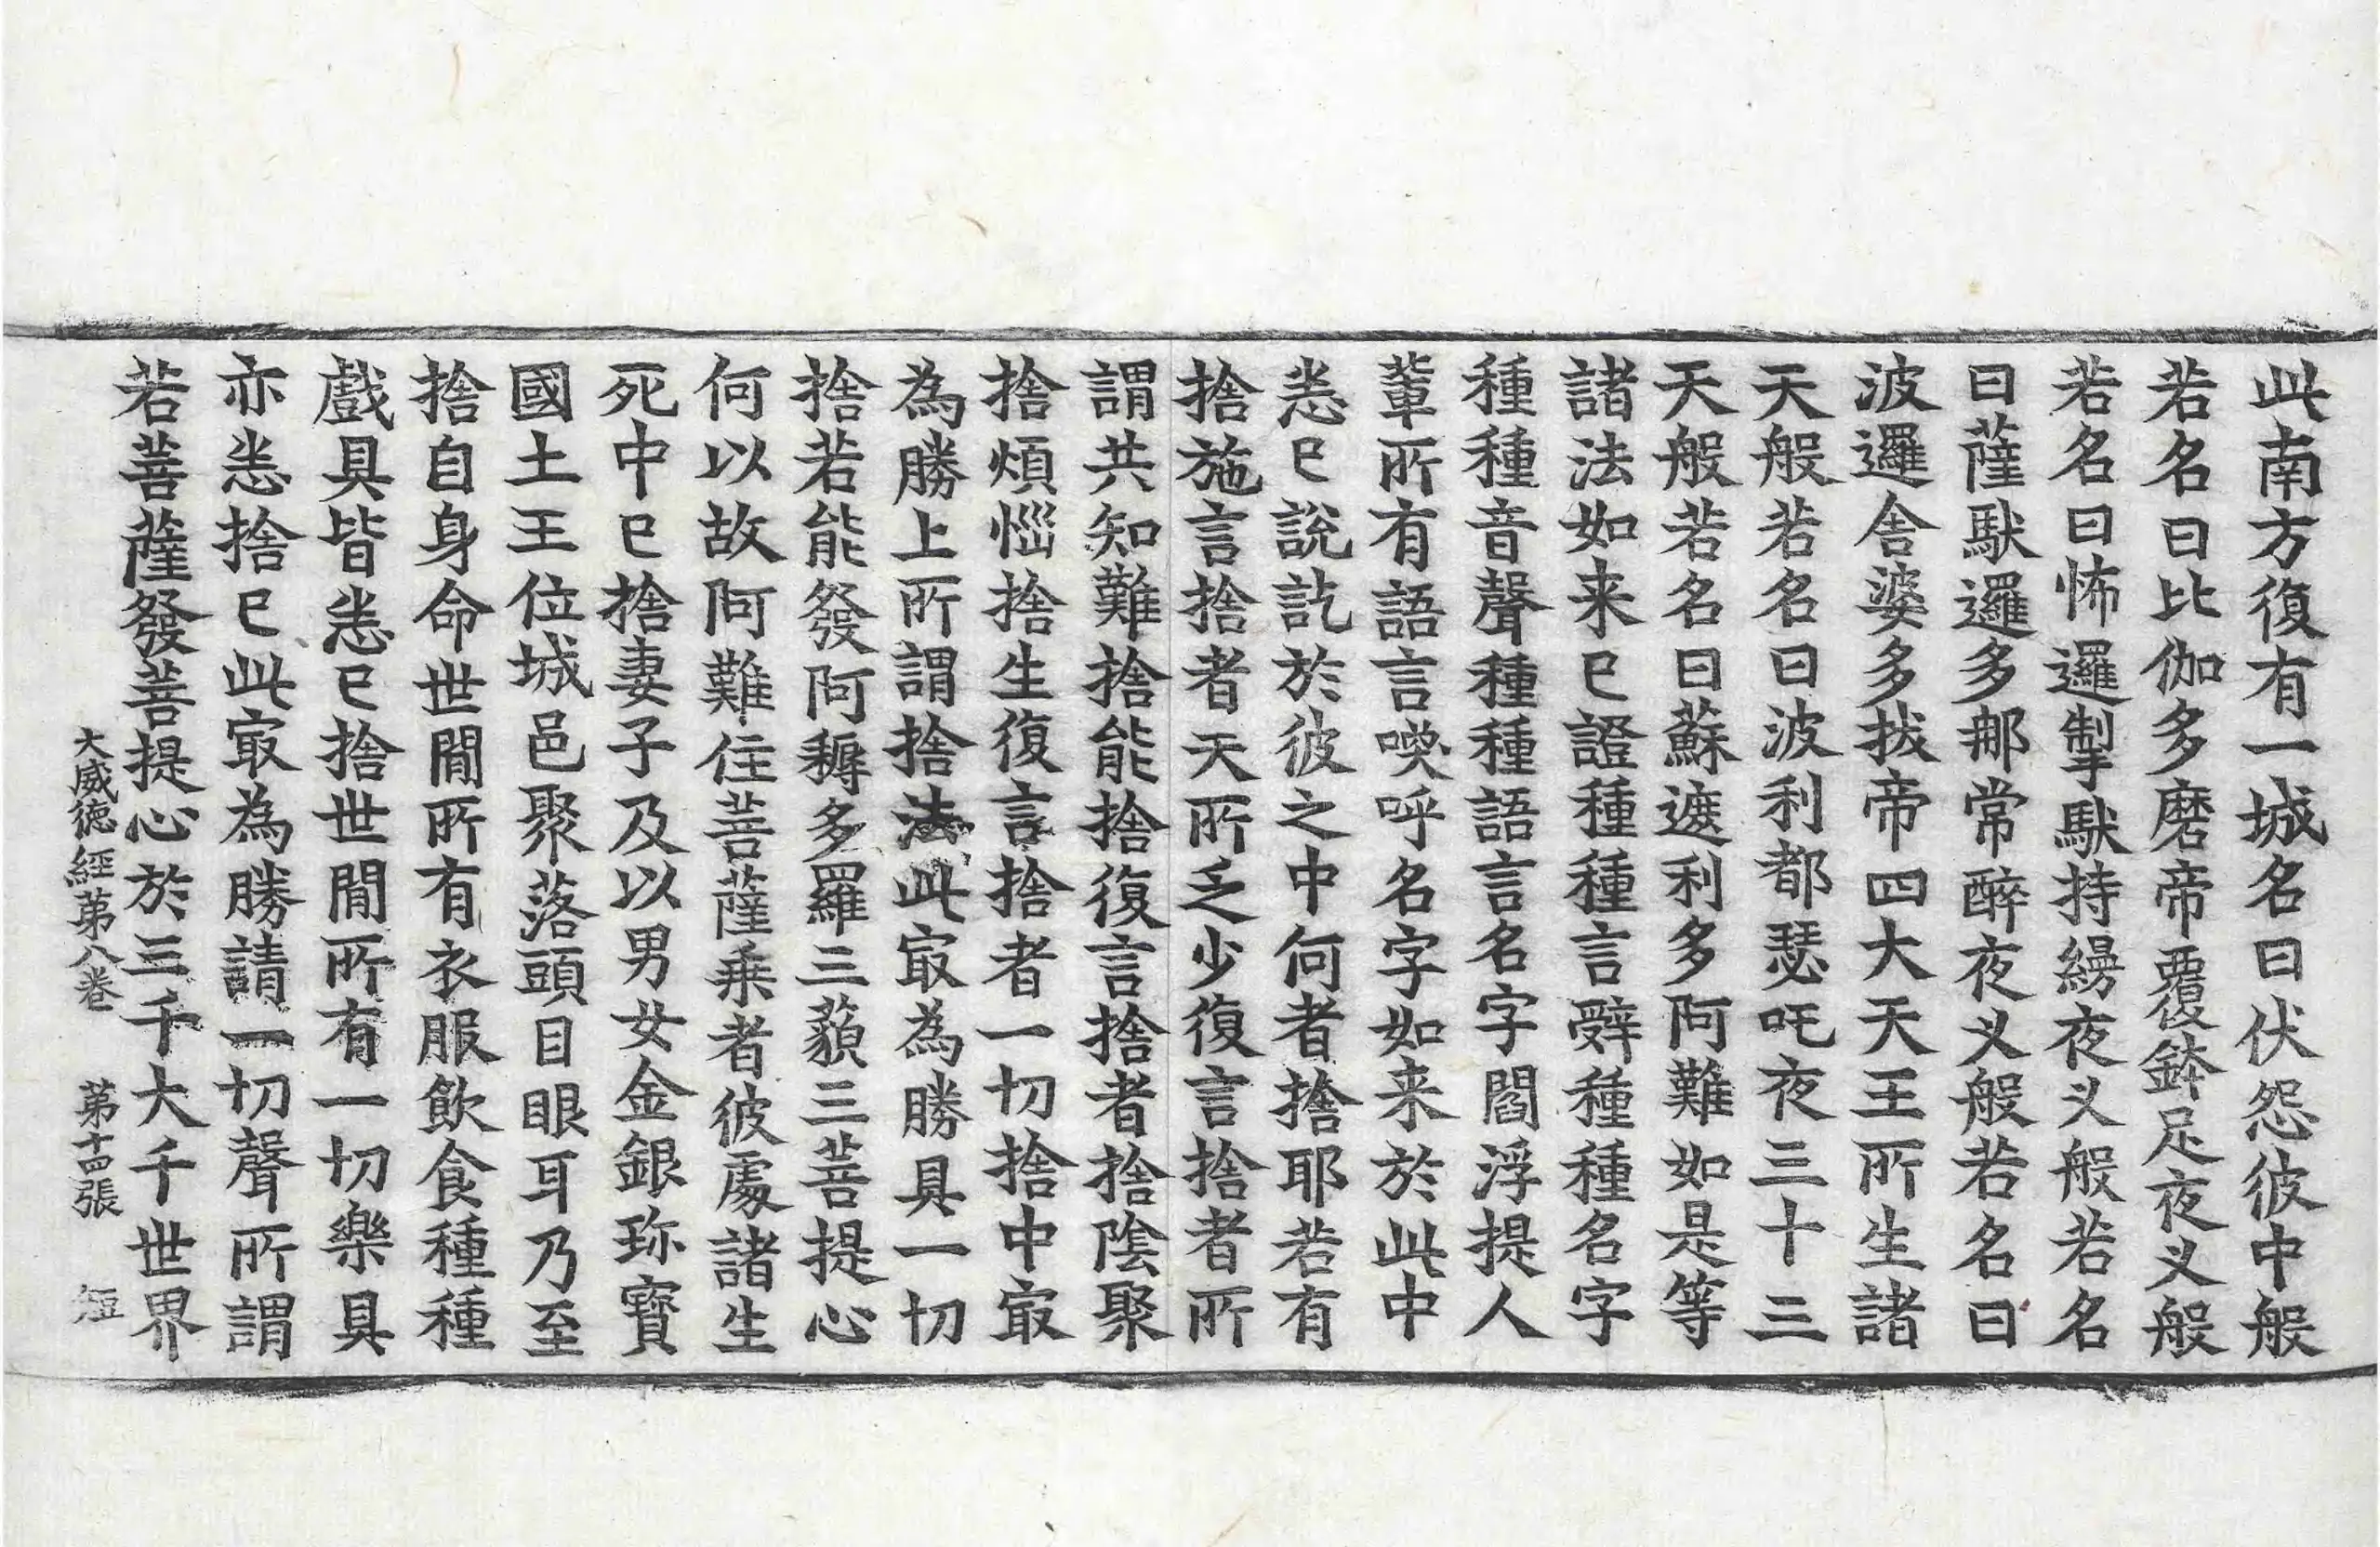 此南方復有一城名曰伏怨彼中般
若名曰比伽多磨帝覆鉢足夜叉般
若名曰怖邏掣馱持繩夜叉般若名
曰薩馱邏多郍常醉夜叉般若名曰
波邏舍婆多拔帝四大天王所生諸
天般若名曰波利都瑟吒夜三十三
天般若名曰蘇遮利多阿難如是等
諸法如来已證種種言辤種種名字
種種音聲種種語言名字閻浮提人
輩所有語言喚呼名字如来於此中
悉已說訖於彼之中何者捨耶若有
捨施言捨者天所乏少復言捨者所
謂共知難捨能捨復言捨者捨陰聚
捨煩惱捨生復言捨者一切捨中㝡
為勝上所謂捨法此㝡為勝具一切
捨若能發阿耨多羅三藐三菩提心
何以故阿難住菩薩乗者彼處諸生
死中已捨妻子及以男女金銀珎寶
國土王位城邑聚落頭目眼耳乃至
捨自身命世間所有衣服飲食種種
戲具皆悉已捨世間所有一切樂具
亦悉捨已此㝡為勝請一切聲所謂
若菩薩發菩提心於三千大千世界
大威徳經第八卷　第十四張　短